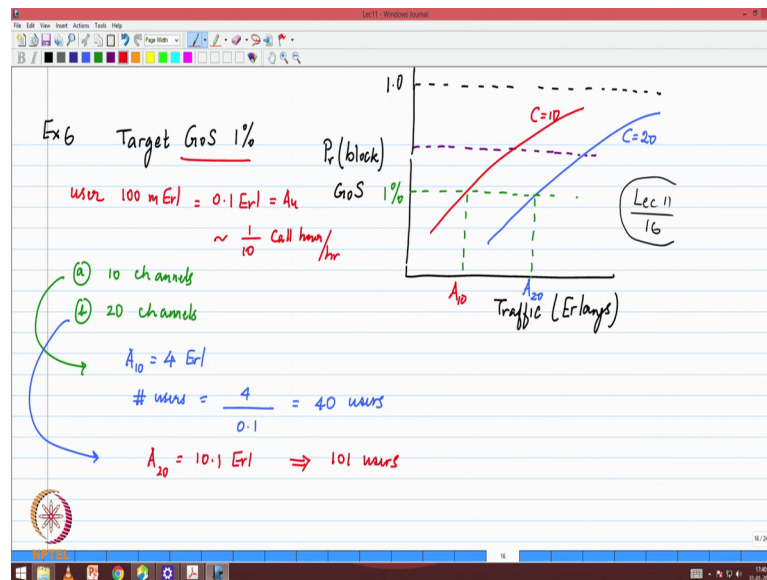 Lec11 - Windows Journal
File Edit View Insert Actions Tools Help
Page Width
B I
Ex 6 Target GoS 1%
user 100 mErl = 0.1 Erl = Au
~ 1/10 Call hour/hr
(a) 10 channels
(b) 20 channels
A10 = 4 Erl
# users = 4/0.1 = 40 users
A20 = 10.1 Erl ⇒ 101 users
1.0
Pr (block)
GoS 1%
C=10
C=20
A10 A20
Traffic (Erlangs)
Lec 11
16
NPTEL
16
17:40